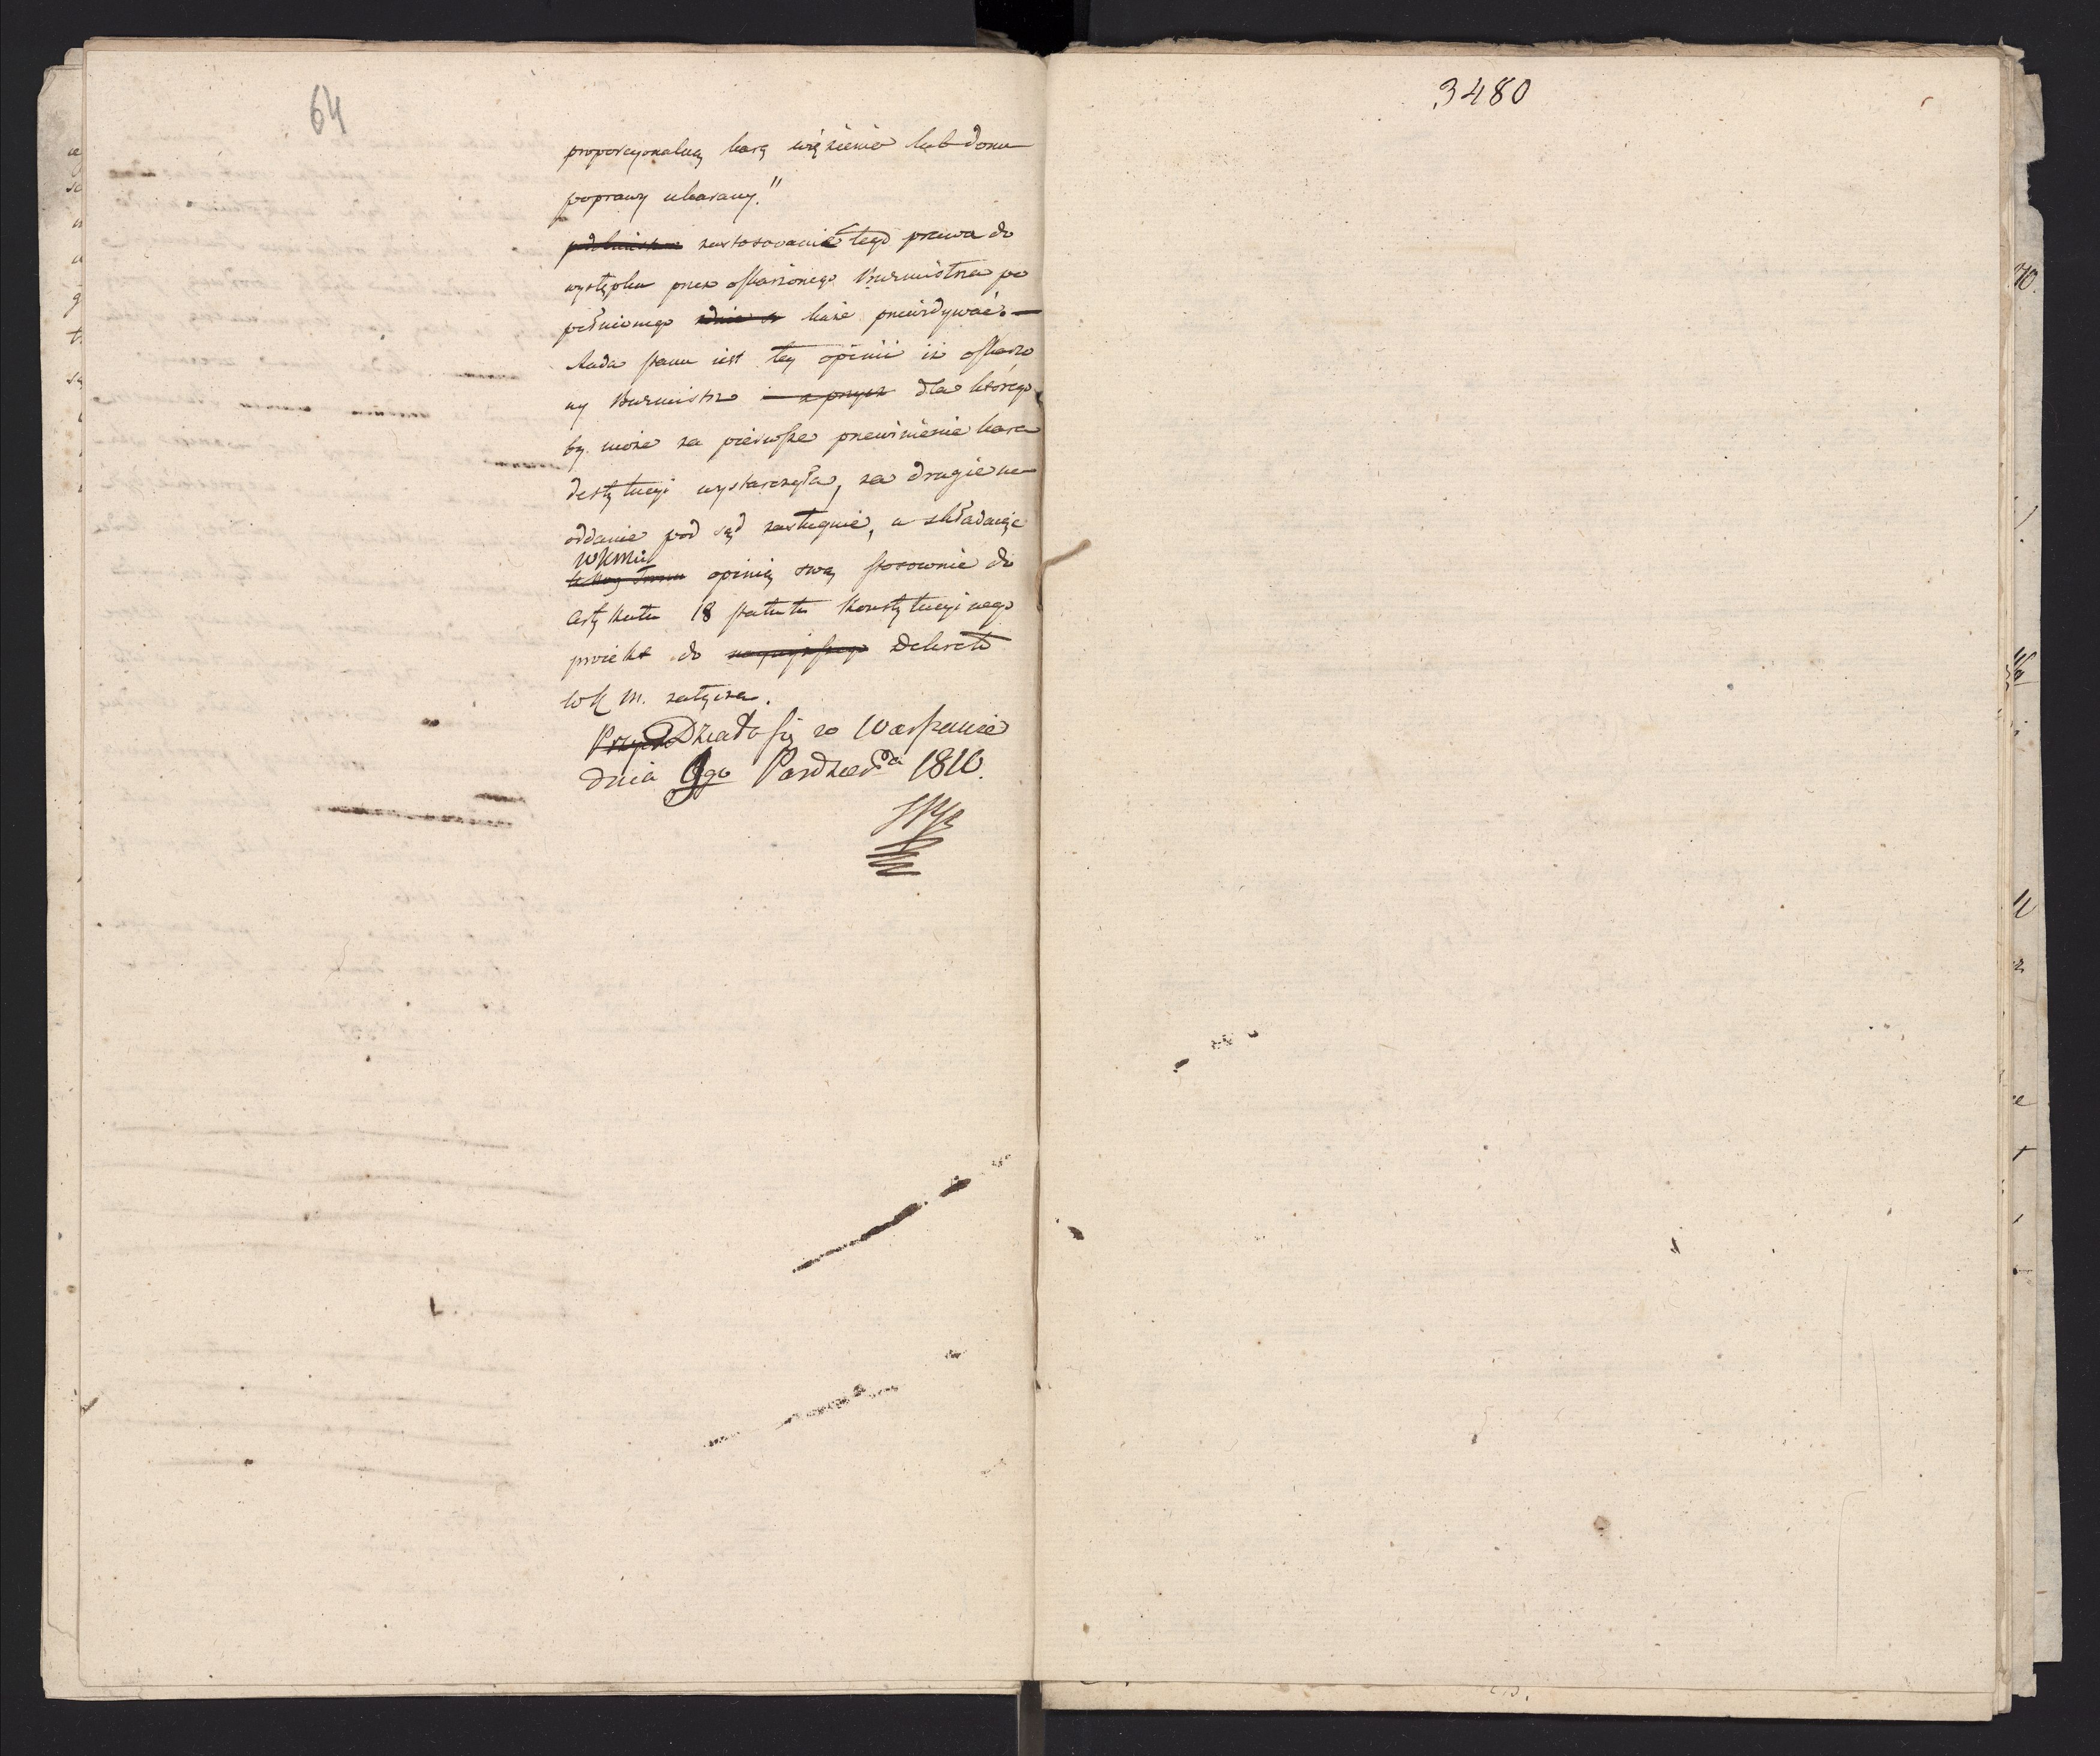 64
proporcyonalną karą więzienia lub domu
poprawy ukarany."
zastosowanie tego prawa do
występku przez oskarżonego Burmistrza po
pełnionego każe przewidywać. —
Rada stanu iest tey opinii iż oskarżo
ny Burmistrz dla którego
by może za pierwsze przewinienie kara
destytucyi wystarczyła, za drugie na
oddanie pod sąd zasługuie, a składaiąc
WKMci
opinią swą stosownie do
Artykułu 18 statutu Konstytucyinego
proiekt do Dekretu
WK M. załącza.
Działo się w Warszawie
dnia 9go Paździer^{ka} 1810.
3480